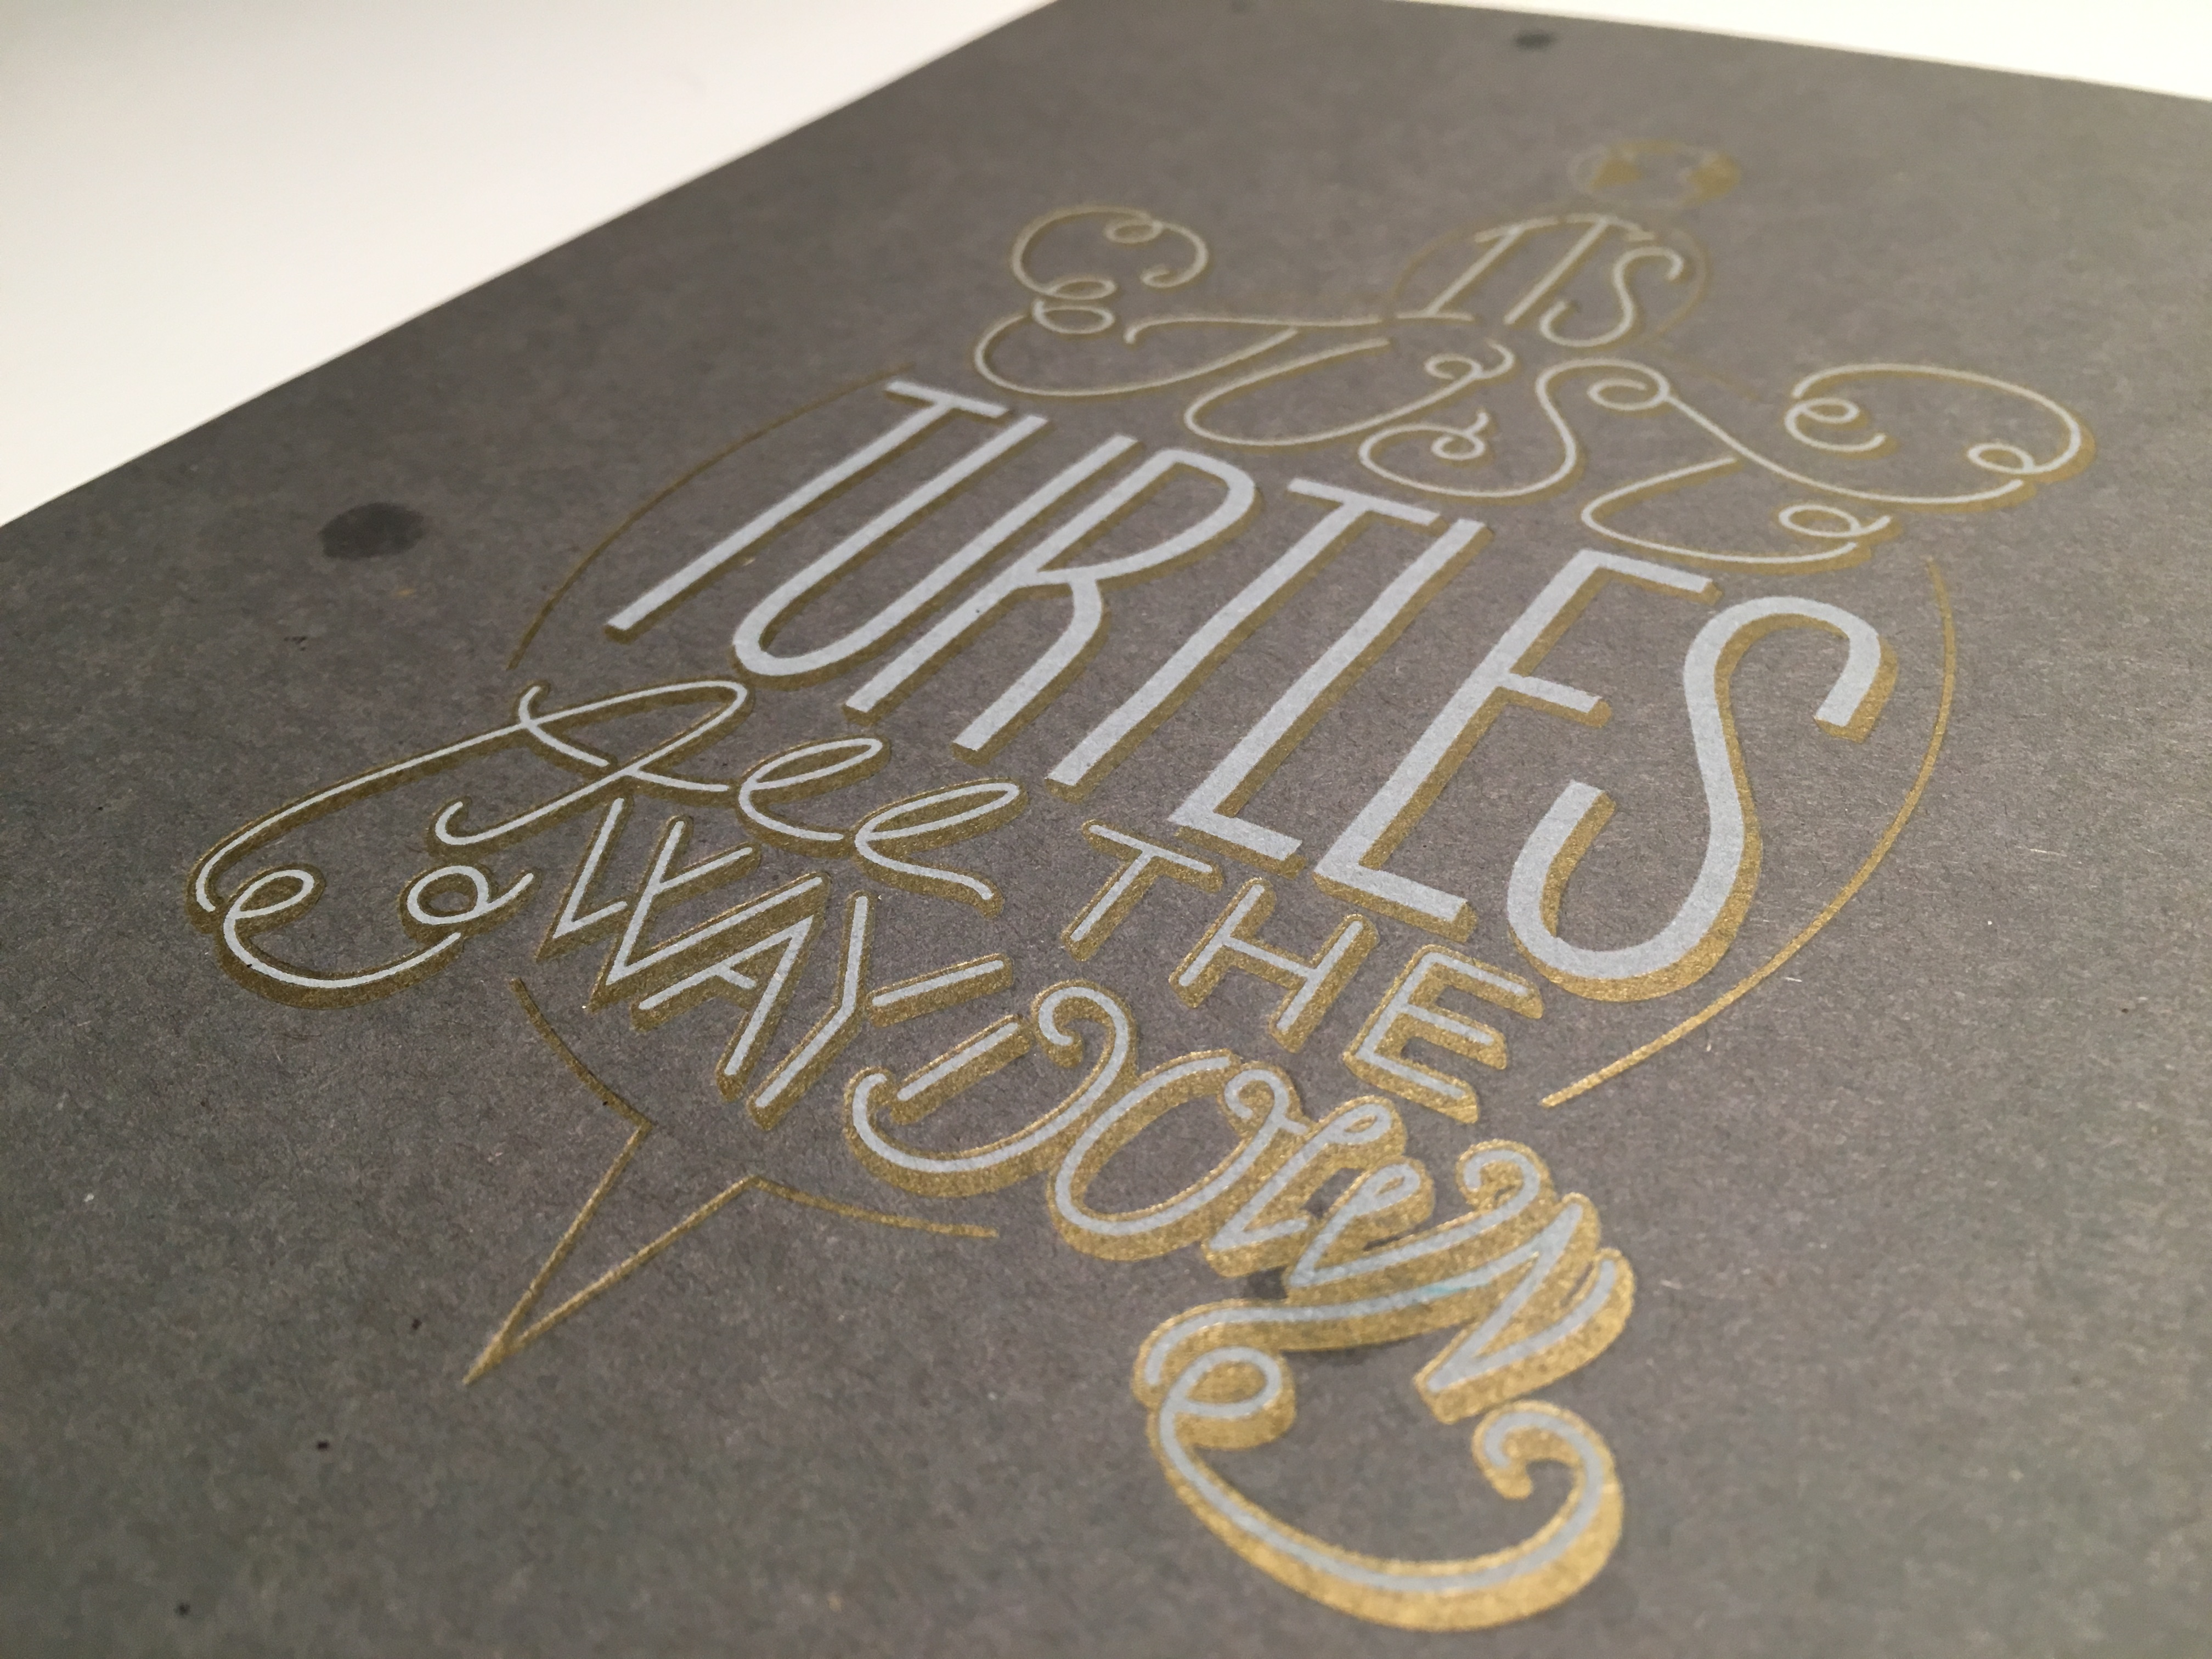 ITS
JUST
TURTLES
All THE
WAY DOWN